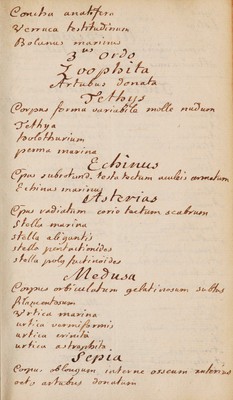 Concha anatifera
Verruca testitudinum
Bolanus marinus
3us ordo
Zoophita
Artubus donata
Tethys
Corpus forma variabila molle nudum
Tethya
holothurium
penna marina
Echinus
Cpus subrotund. testa tectum aculeis armatum
Echinus marinus
Asterias
Cpus radiatum corio tectum scabrum
Stella marina
stella
stella pentactinoides
stella
Medusa
Corpus orbiculatum gelatinosum subtus
filamentosum
Urtica marina
urtica vermiformis
urtica crinita
urtica astrophita
Sepia
Corpus oblongum interne osseum anterius
octo artubus donatum